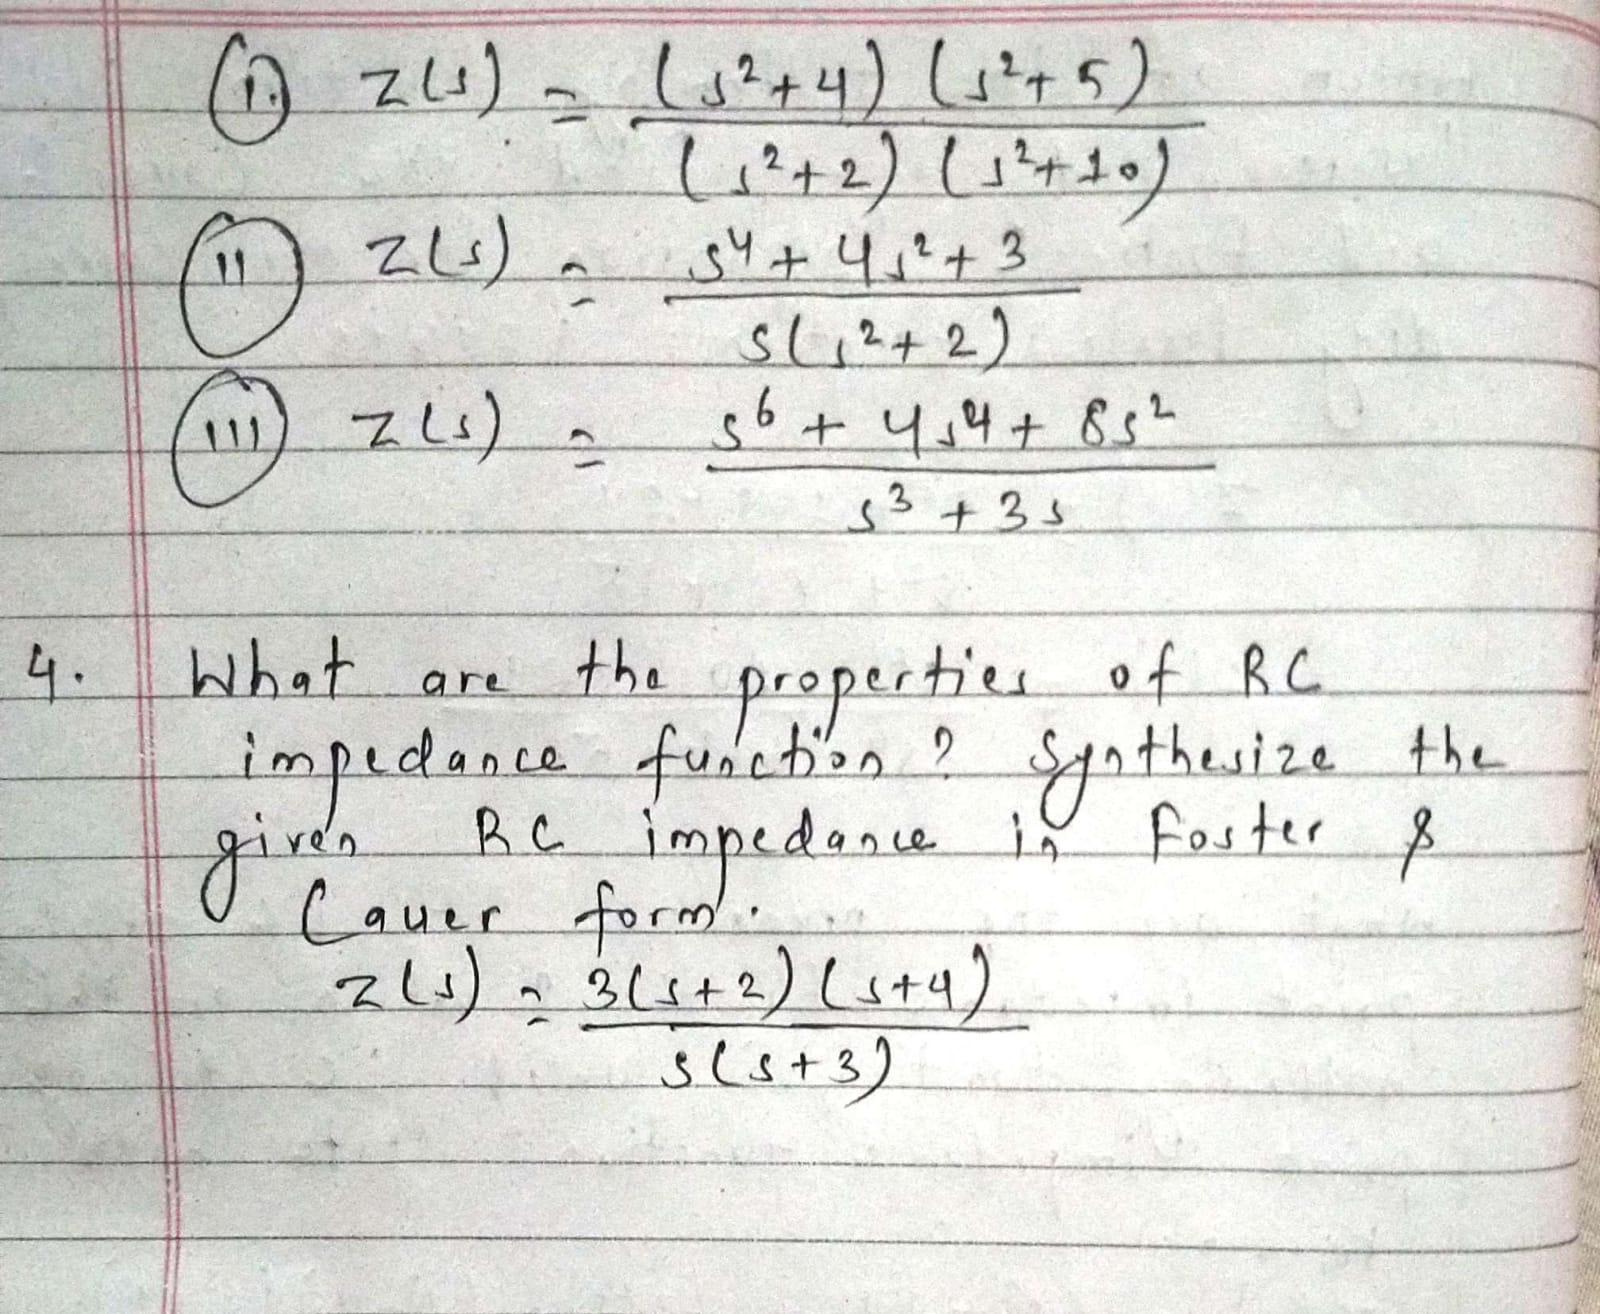 (i) Z(s) = (s²+4) (s²+5)
(s²+2) (s²+10)
(ii) Z(s) = s⁴ + 4s² + 3
s(s²+2)
(iii) Z(s) = s⁶ + 4s⁴ + 8s²
s³ + 3s
4. What are the properties of RC
impedance function ? Synthesize the
given RC impedance in Foster &
Cauer form.
Z(s) = 3(s+2) (s+4)
s(s+3)